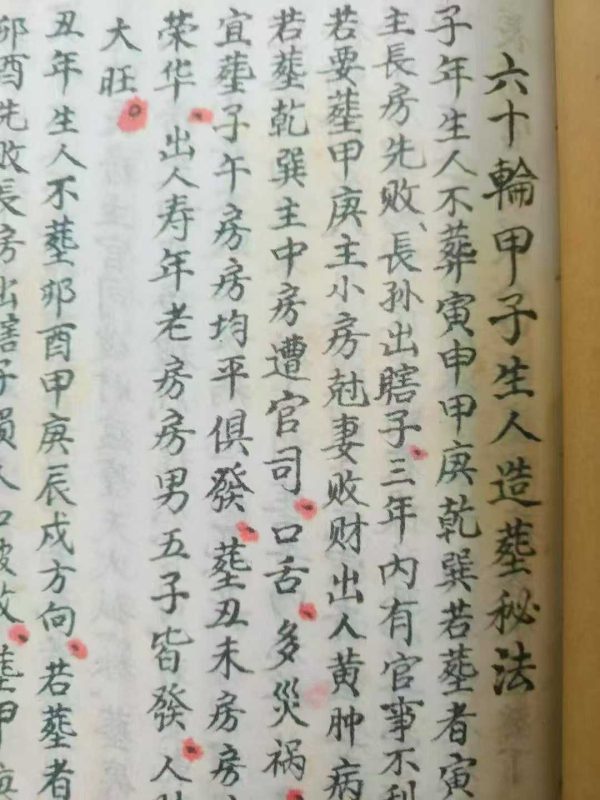 六十輪甲子生人造塟秘法
子年生人不葬寅申甲庚乾巽若塟者寅
主長房先敗、長孙出瞎子三年内有官事不利
若要塟甲庚主小房尅妻敗财出人黄肿病
若塟乾巽主中房遭官司口舌多災祸
宜塟子午房房均平俱發塟丑未房房
荣华出人寿年老房房男五子皆發人
大旺。
丑年生人不塟卯酉甲庚辰戍方向若塟者
卯酉先敗長房出瞎子損人口